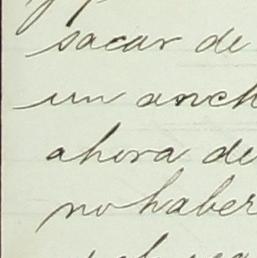 sacar de
un anch
ahora de
no haber